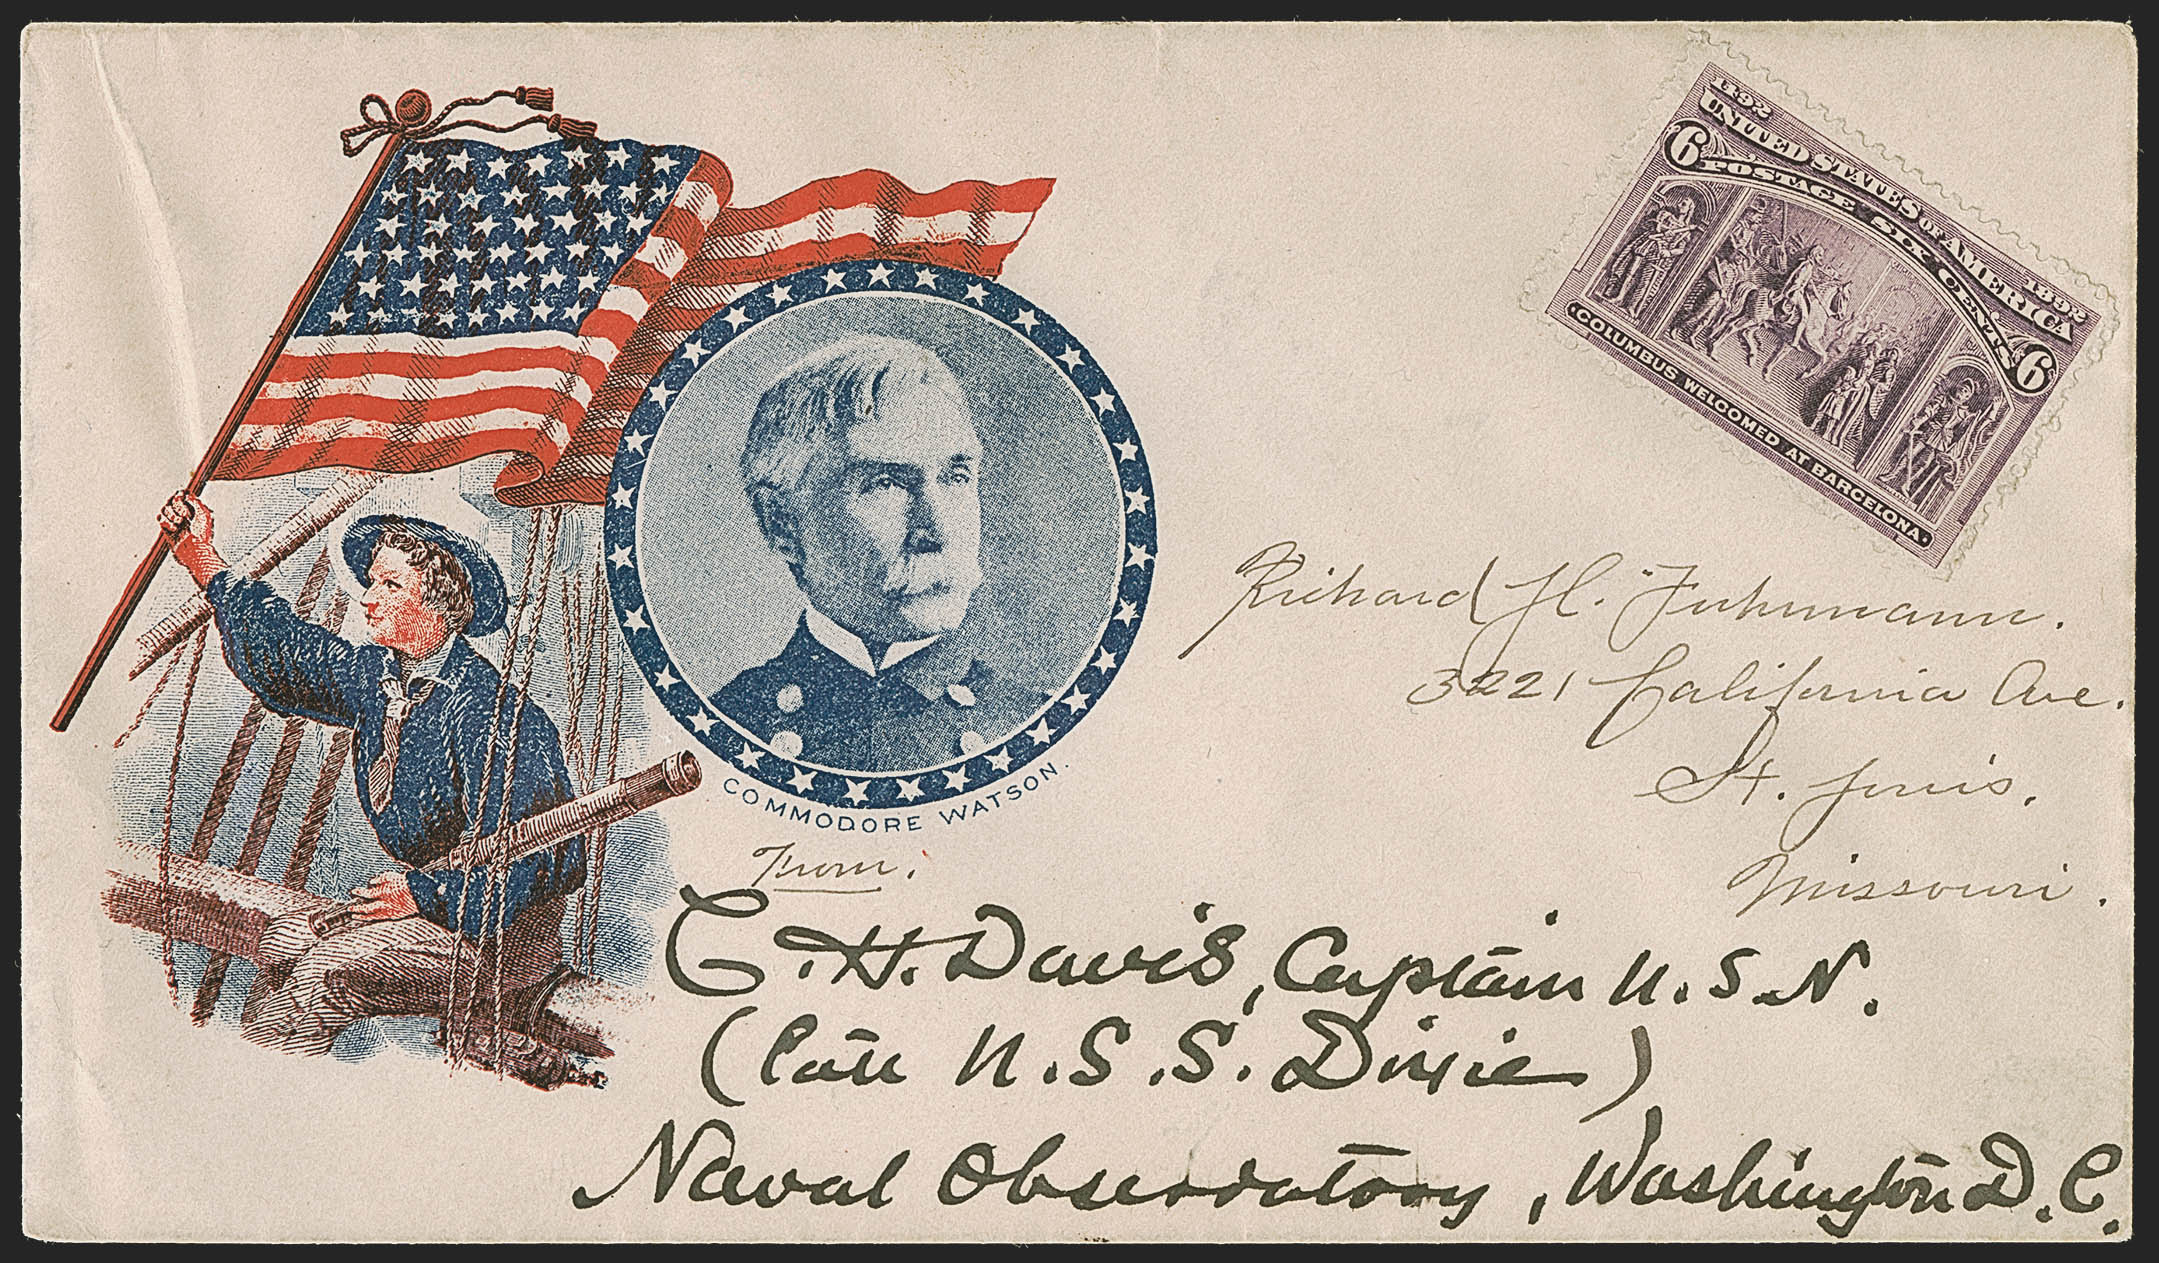 1492
1892
UNITED STATES OF AMERICA
6 POSTAGE SIX CENTS 6
COLUMBUS WELCOMED AT BARCELONA.
COMMODORE WATSON.
Richard H. Fuhrmann.
3221 California Ave.
St. Louis.
Missouri.
From.
C. H. Davis, Captain U.S.N.
(late U.S.S. Dixie)
Naval Observatory, Washington D.C.